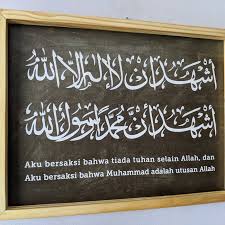 أشهد أن لا إله إلا الله
أشهد أن محمدا رسول الله
Aku bersaksi bahwa tiada tuhan selain Allah, dan
Aku bersaksi bahwa Muhammad adalah utusan Allah